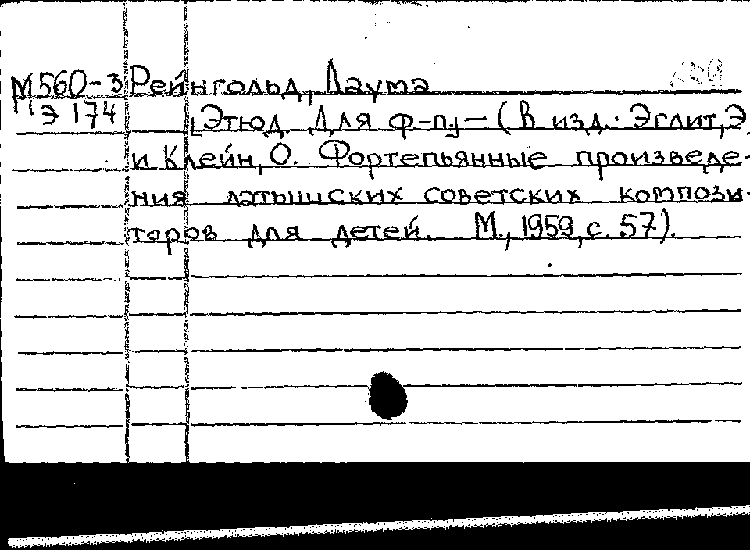 М560-3 Рейнгольд, Лаума
Э 174 [Этюд. Для ф-п.] – (В изд.: Эглит, Э.
и Клейн, О. Фортепьянные произведе-
ния латышских советских компози-
торов для детей. М., 1959, с. 57).